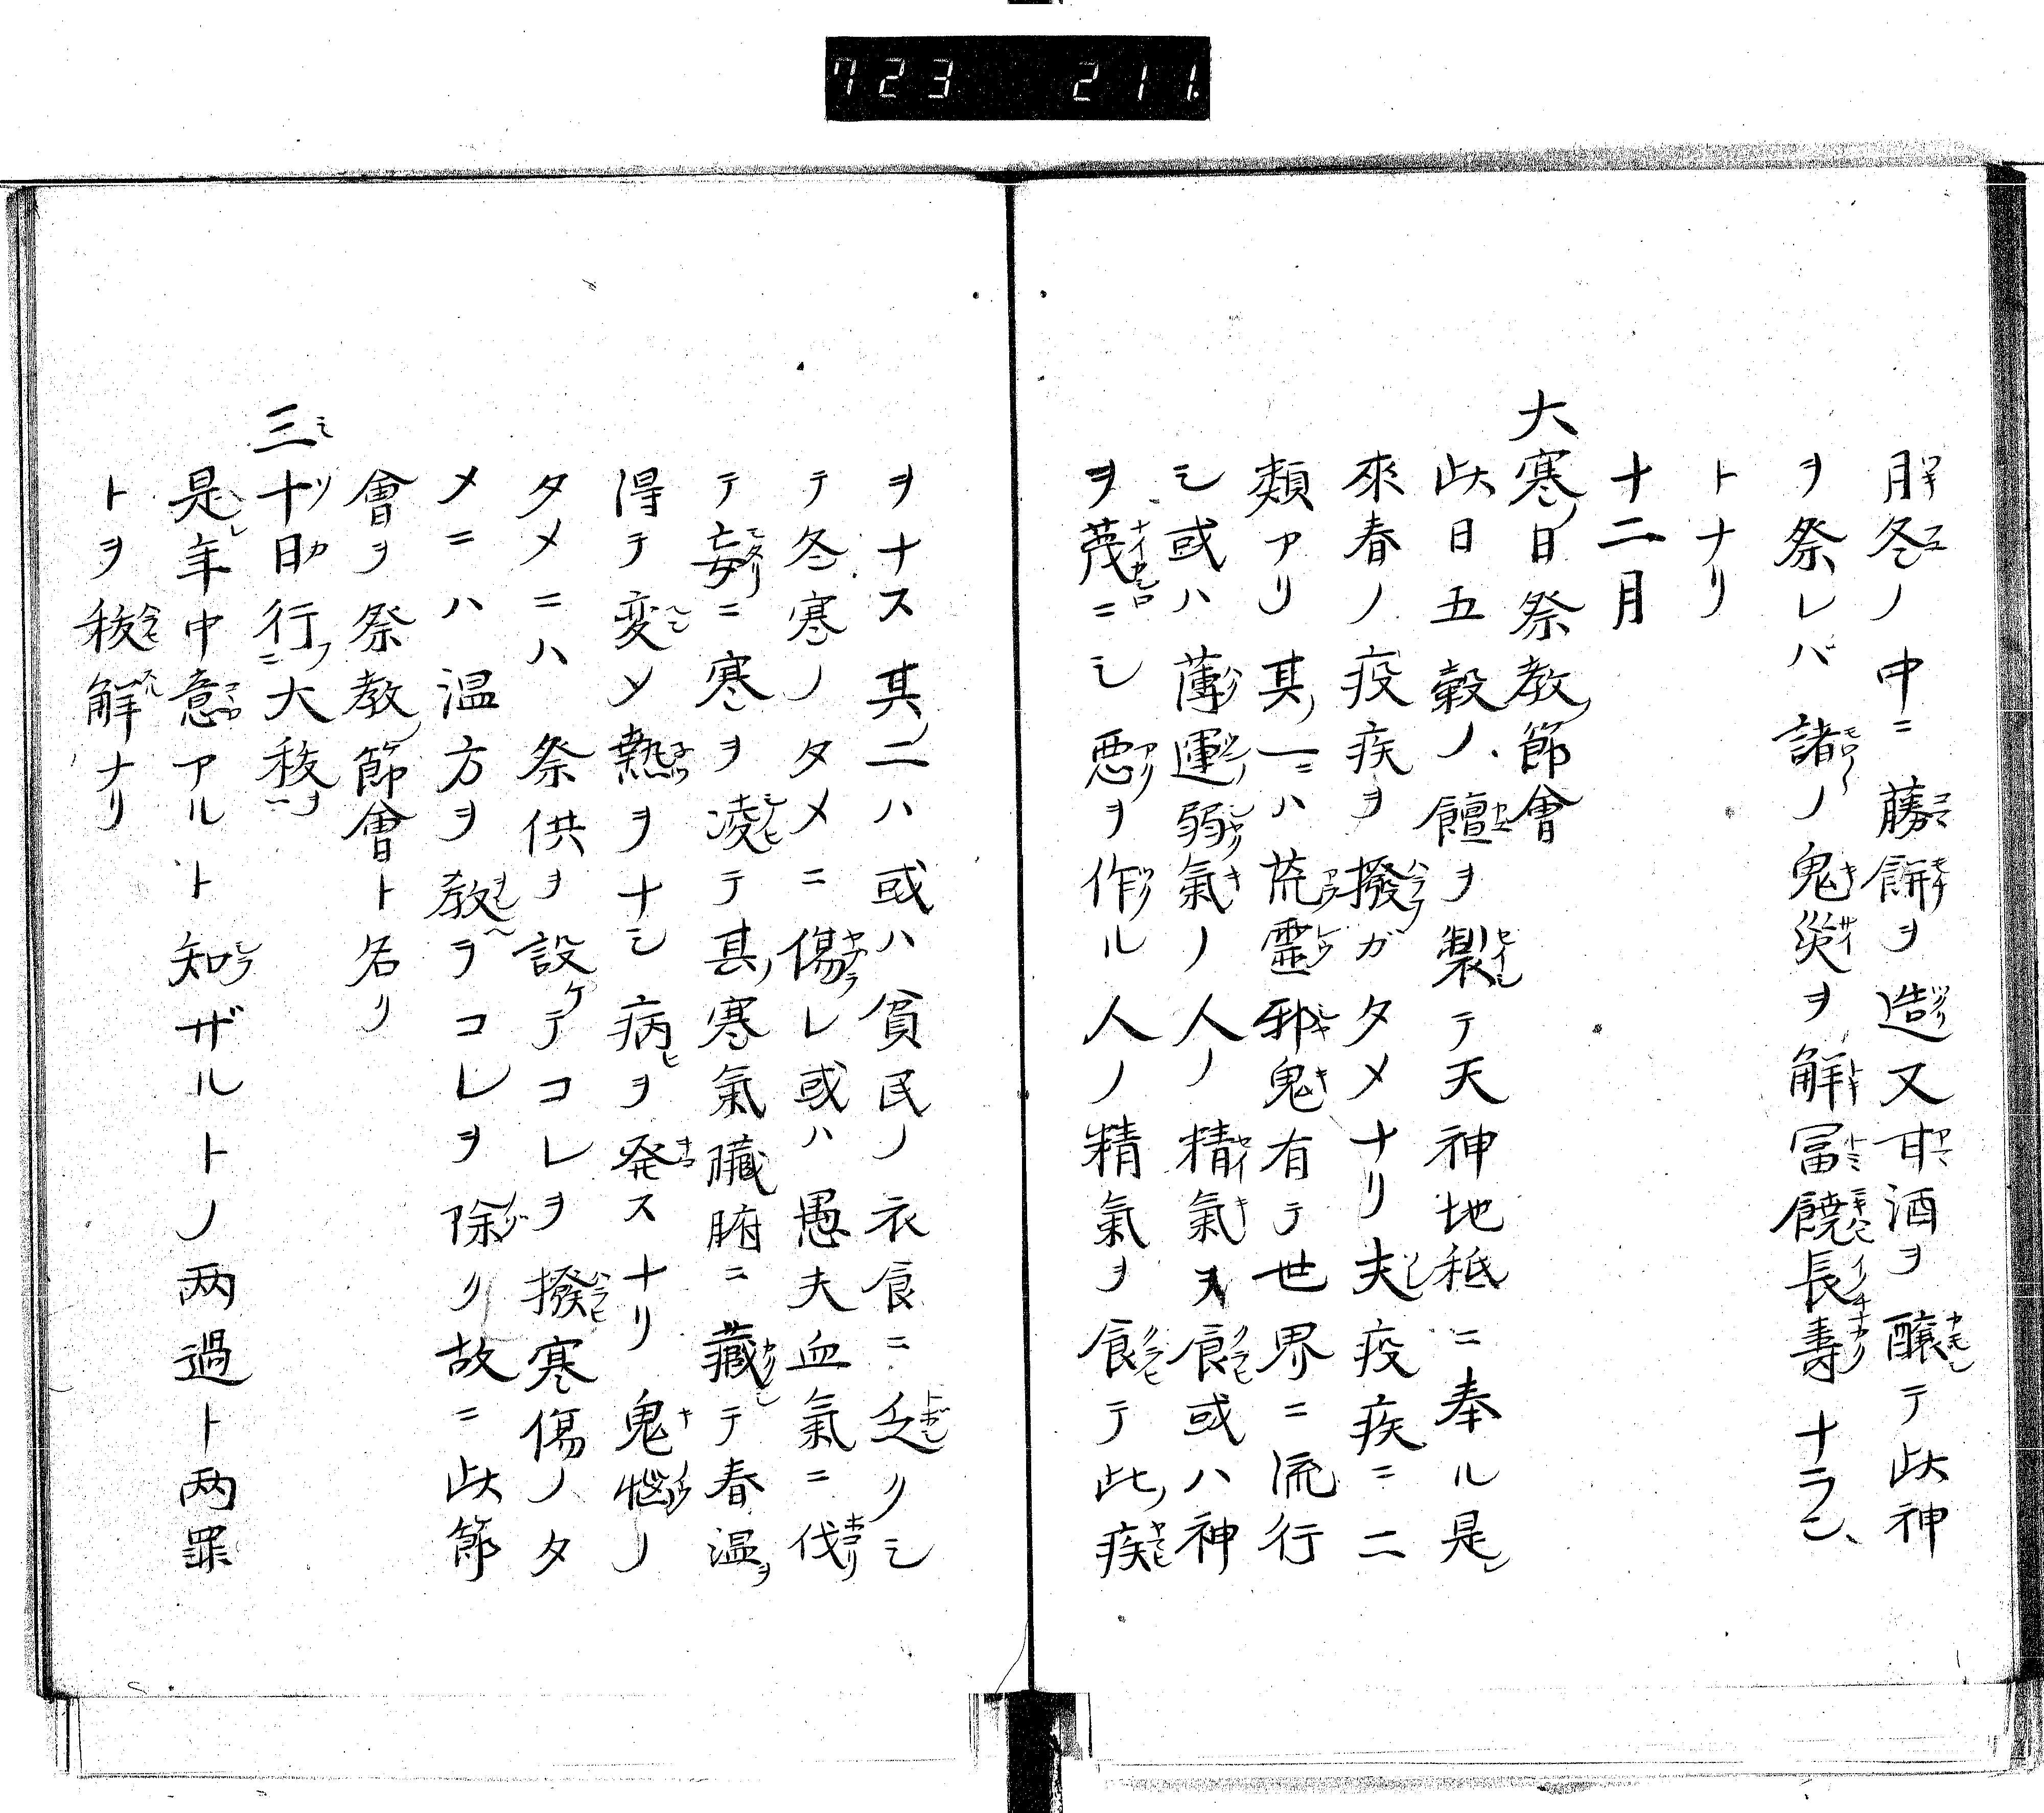 723 211.
月冬ノ中ニ藤餅ヲ造又甘酒ヲ醸テ此神
ヲ祭レバ諸ノ鬼災ヲ解冨饒長壽ナラン、
トナリ
十二月
大寒ノ日祭教ノ節會
此日五穀ノ饘ヲ製テ天神地祇ニ奉ル是レ
來春ノ疫疾ヲ撥ガタメナリ夫疫疾ニ二
類アリ其ノ一ニハ荒靈邪鬼有テ世界ニ流行
シ或ハ薄運弱氣ノ人ノ精氣ヲ食或ハ神
ヲ蔑ニシ惡ヲ作ル人ノ精氣ヲ食テ此ノ疾
ヲナス其ノ二ハ或ハ貧民ノ衣食ニ乏リシ
テ冬寒ノタメニ傷レ或ハ愚夫血氣ニ伐
テ妄ニ寒ヲ凌テ其ノ寒氣臓腑ニ藏テ春温ヲ
得テ変メ熱ヲナシ病ヲ発スナリ鬼悩ノ
タメニハ祭供ヲ設ケテコレヲ撥寒傷ノタ
メニハ温方ヲ教ヲコレヲ除リ故ニ此節
會ヲ祭教ノ節會ト名リ
三十日行フ二大秡ヲ一
是年中意アルト知ザルトノ两過ト两罪
トヲ秡解ナリ